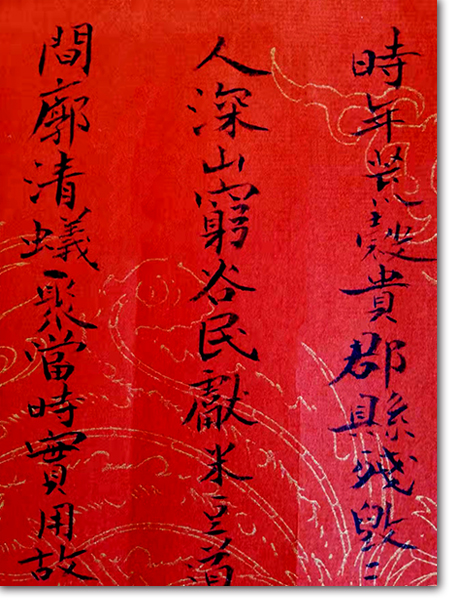 時年荒穀貴郡縣殘毀二
人深山窮谷民獻米豆
間廓清蟻聚當時實用故